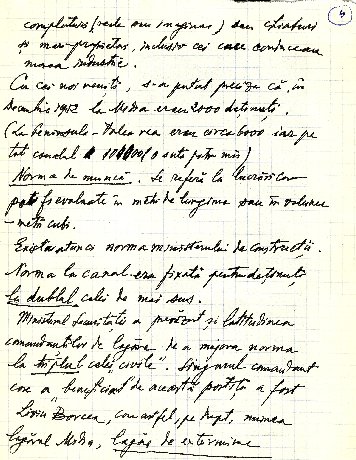 4
complotiști (reale sau imaginare) sau chiaburi
și mari proprietari, inclusiv cei care conduceau
marea industrie.
Cu cei noi veniți, s-a putut preciza că, în
Decembrie 1952 la Midia erau 2000 deținuți.
(La Peninsula - Valea rea erau circa 6000 iar pe
tot canalul o sută patru mii)
Norma de muncă. Se referă la lucrări ce
pot fi evaluate în metri de lungime sau în volume
- metri cubi.
Exista atunci norma ministerului de construcții.
Norma la canal era fixată pentru deținuți
la dublul celei de mai sus.
Ministerul Securității a prevăzut și latitudinea
comandanților de lagăre de a majora norma
la "triplul celei civile". Singurul comandant
care a beneficiat de această portiță a fost
Liviu Borcea, care astfel, pe drept, numea
lagărul Midia, lagăr de exterminare